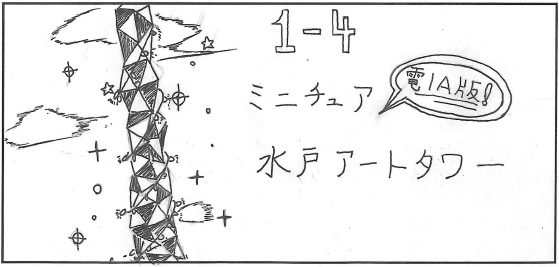 1-4
ミニチュア
電1A版!
水戸アートタワー